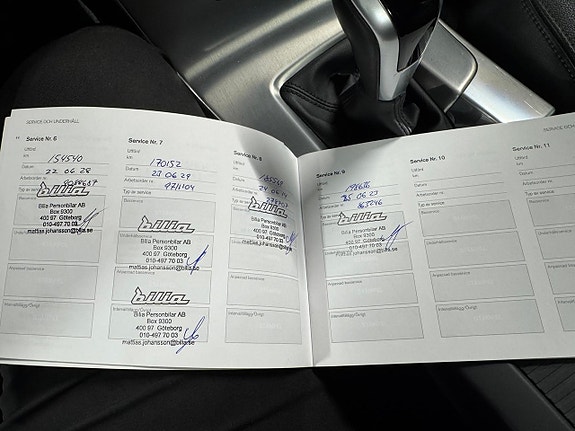 SERVICE OCH UNDERHÅLL
Service Nr. 6
Utförd
km
154540
Datum
22 06 28
Arbetsorder nr.
Typ av service
Basservice
billa
Bilia Personbilar AB
Box 9300
400 97 Göteborg
010-497 70 03
mattias.johansson@bilia.se
Anpassad basservice
Intervalltillägg/Övrigt
Service Nr. 7
Utförd
km
170152
Datum
23 06 29
Arbetsorder nr.
971104
Typ av service
Basservice
bilia
Bilia Personbilar AB
Box 9300
400 97 Göteborg
010-497 70 03
mattias.johansson@bilia.se
bilia
Bilia Personbilar AB
Box 9300
400 97 Göteborg
010-497 70 03
mattias.johansson@bilia.se
Service Nr. 8
Utförd
km
Datum
Arbetsorder nr.
Typ av service
bilia
Bilia Personbilar AB
Box 9300
400 97 Göteborg
010-497 70 03
mattias.johansson@bilia.se
Anpassad basservice
Intervalltillägg/Övrigt
Service Nr. 9
Utförd
km
Datum
25 06 23
Arbetsorder nr.
Typ av service
Basservice
bilia
Bilia Personbilar AB
Box 9300
400 97 Göteborg
010-497 70 03
mattias.johansson@bilia.se
Anpassad basservice
Intervalltillägg/Övrigt
SERVICE OCH
Service Nr. 10
Utförd
km
Datum
Arbetsorder nr.
Typ av service
Basservice
Anpassad basservice
Intervalltillägg/Övrigt
Service Nr. 11
Utförd
km
Datum
Arbetsorder nr.
Typ av service
Basservice